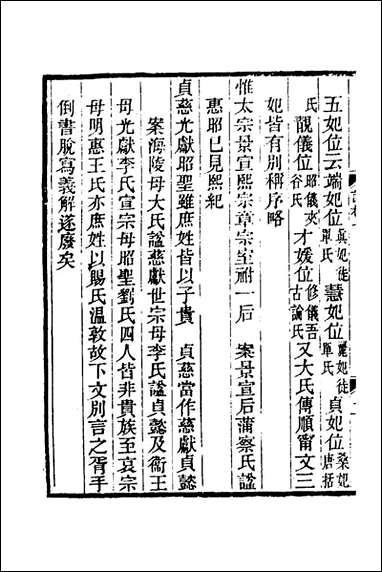 五妃位云端妃位真妃徒單氏慧妃位麗妃徒單氏貞妃位柔妃唐括
氏靚儀位昭儀夾谷氏才媛位修儀吾古論氏又大氏傳順甯文三
妃皆有別稱序略
惟太宗景宣熙宗章宗室祔一后 案景宣后蒲察氏諡
惠昭已見熙紀
貞慈光獻昭聖雖庶姓皆以子貴 貞慈當作慈獻貞懿
案海陵母大氏諡慈獻世宗母李氏諡貞懿及衞王
母光獻李氏宣宗母昭聖劉氏四人皆非貴族至哀宗
母明惠王氏亦庶姓以賜氏溫敦故下文別言之胥手
倒書脫寫義解遂廢矣